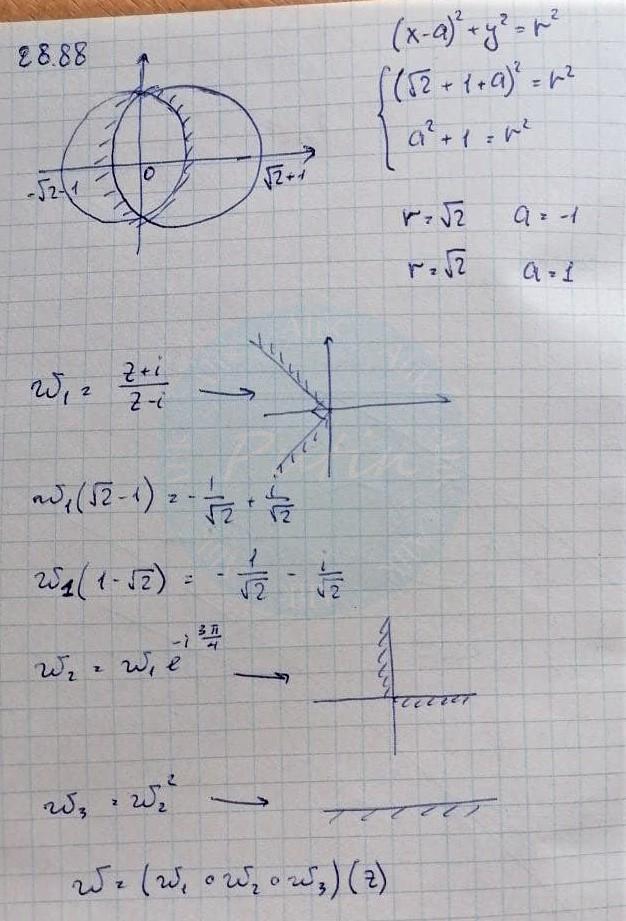 28.88
(x-a)² + y² = r²
(√2 + 1 + a)² = r²
a² + 1 = r²
-√2-1 0 √2+1
r = √2 a = -1
r = √2 a = 1
w₁ = (z+i)/(z-i) →
Putin
w₁(√2-1) = -1/√2 + i/√2
w₁(1-√2) = -1/√2 - i/√2
w₂ = w₁ e^(-i 3π/4) →
w₃ = w₂² →
w = (w₁ ∘ w₂ ∘ w₃)(z)